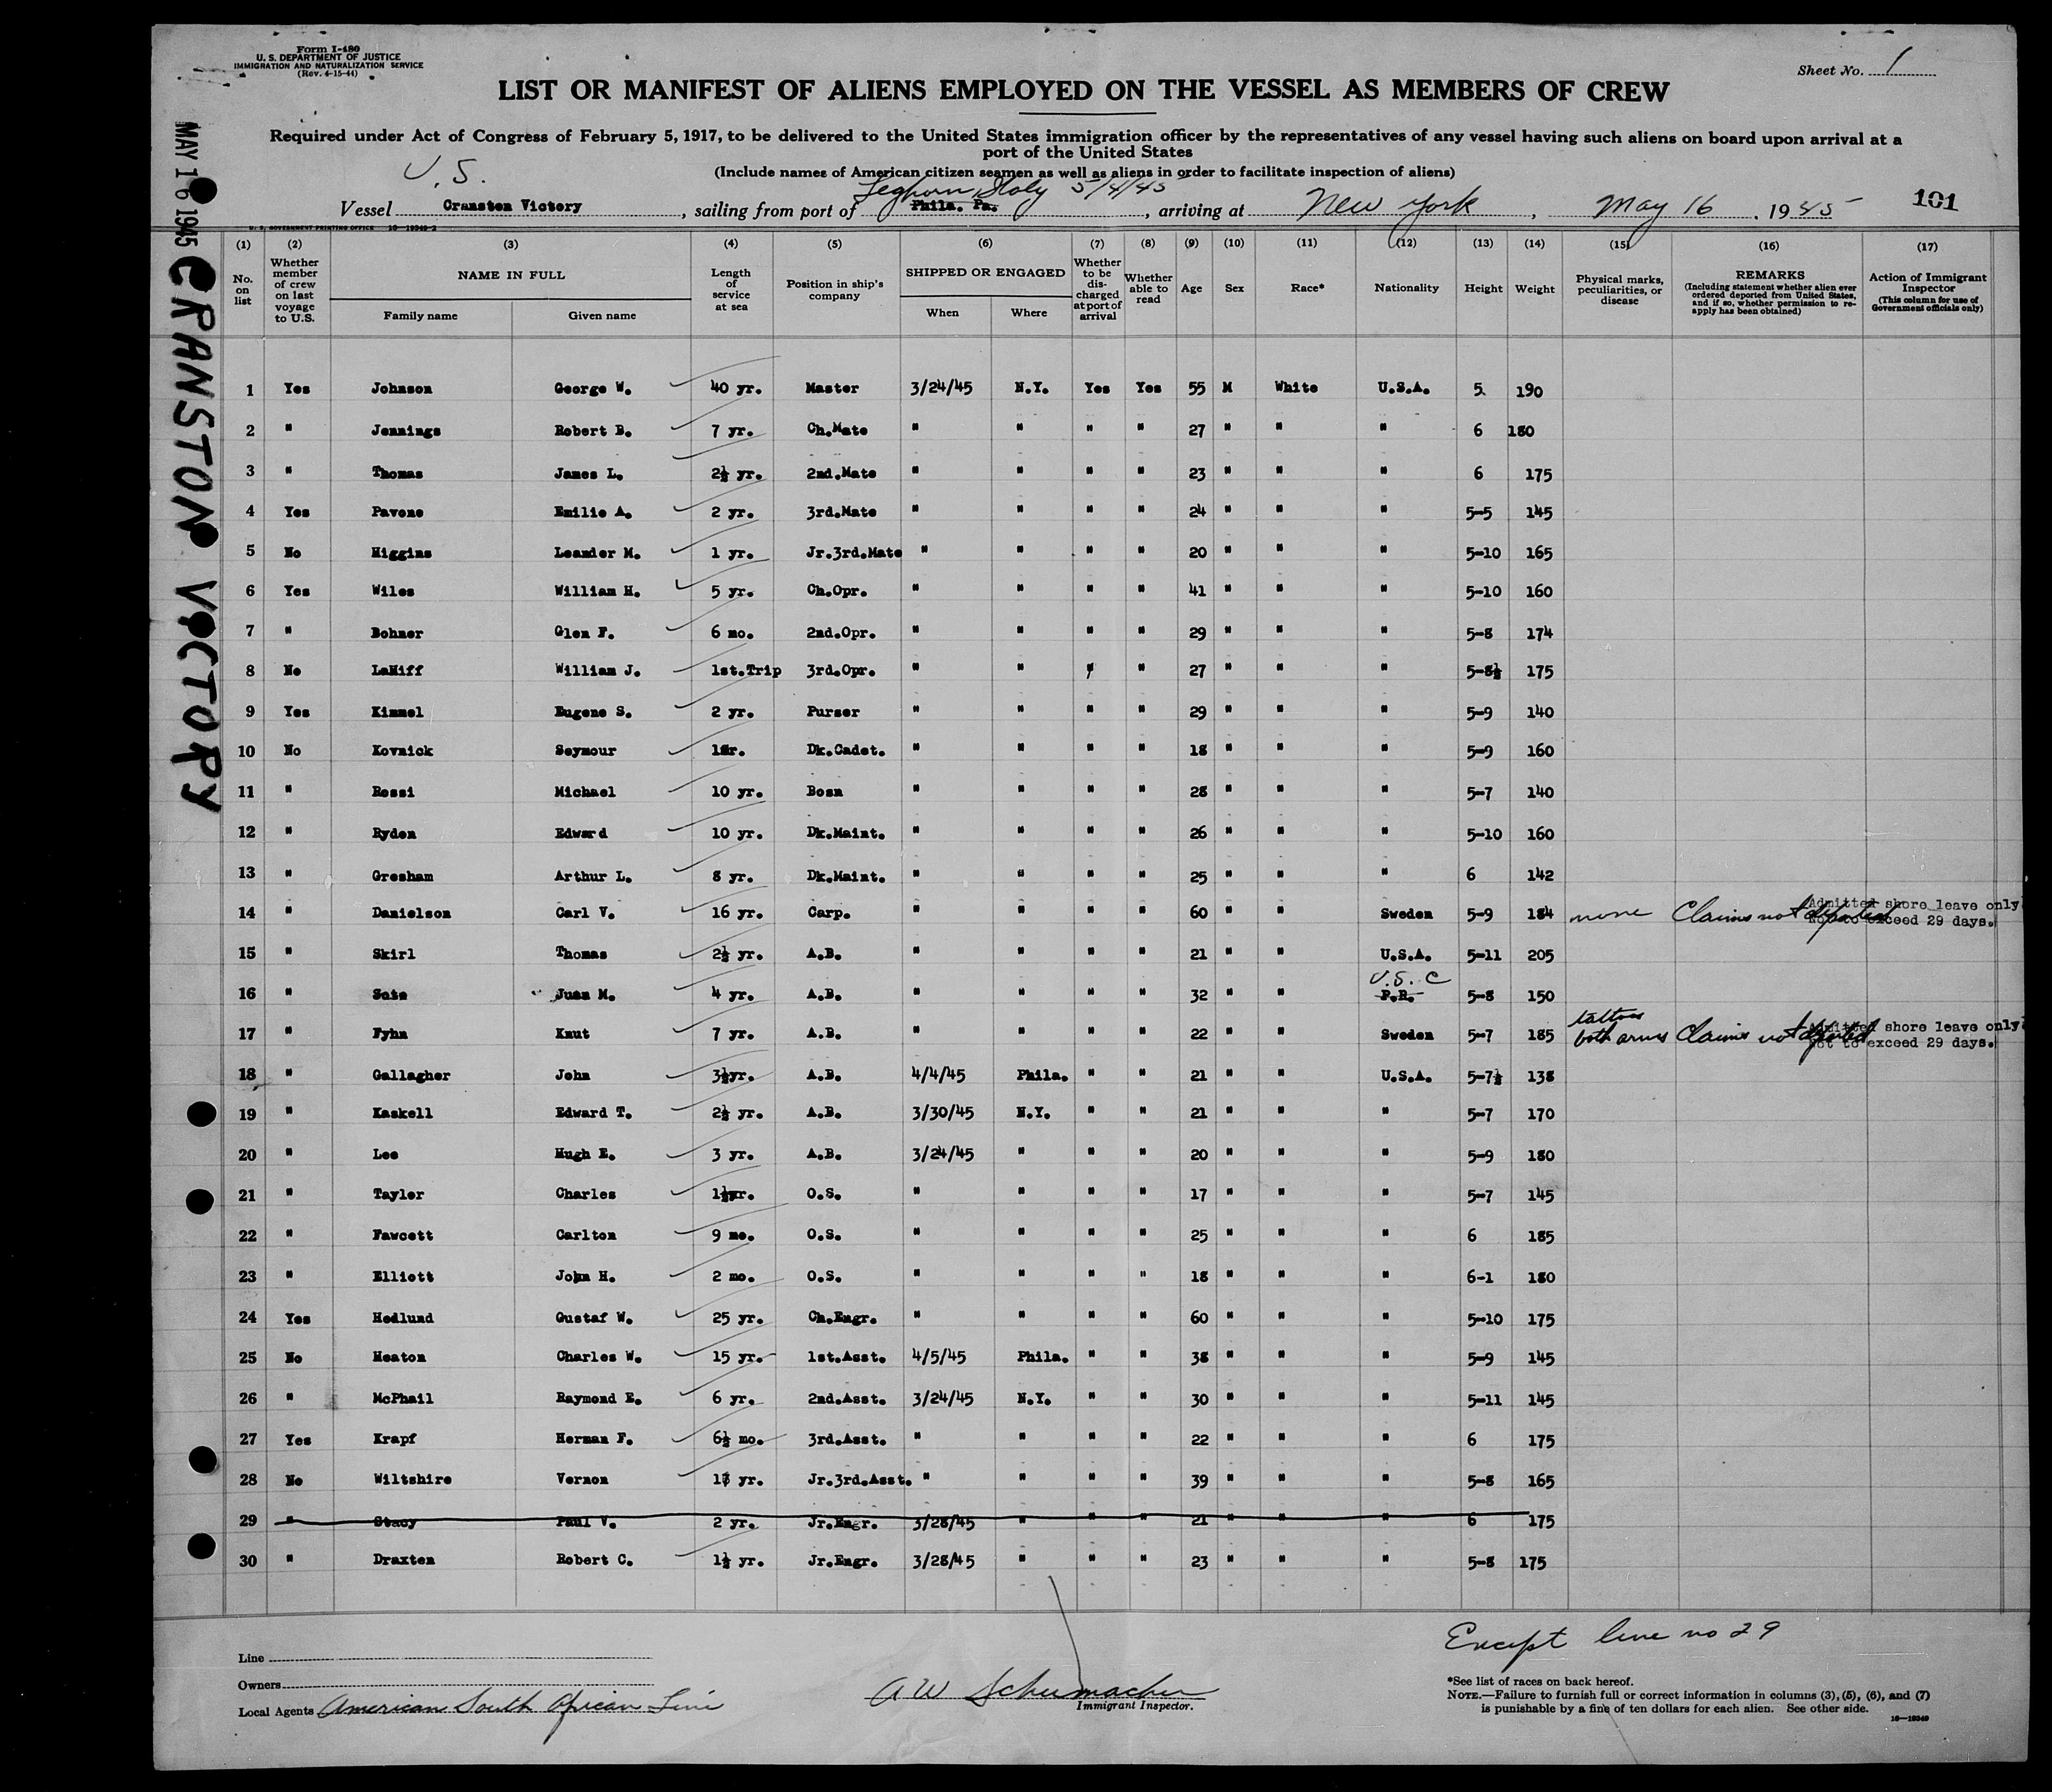 Form I-480
U. S. DEPARTMENT OF JUSTICE
IMMIGRATION AND NATURALIZATION SERVICE
(Rev. 4-15-44)
Sheet No. 1
LIST OR MANIFEST OF ALIENS EMPLOYED ON THE VESSEL AS MEMBERS OF CREW
Required under Act of Congress of February 5, 1917, to be delivered to the United States immigration officer by the representatives of any vessel having such aliens on board upon arrival at a
port of the United States
(Include names of American citizen seamen as well as aliens in order to facilitate inspection of aliens)
U.S.
Leghorn, Italy 5/4/45
Vessel Cranston Victory, sailing from port of Phila. Pa., arriving at New York, May 16, 1945
101
MAY 16 1945 CRANSTON VICTORY
U. S. GOVERNMENT PRINTING OFFICE 16-19349-2
(1) (2) (3) (4) (5) (6) (7) (8) (9) (10) (11) (12) (13) (14) (15) (16) (17)
No. on list
Whether member of crew on last voyage to U.S.
NAME IN FULL
Family name Given name
Length of service at sea
Position in ship's company
SHIPPED OR ENGAGED
When Where
Whether to be discharged at port of arrival
Whether able to read
Age
Sex
Race*
Nationality
Height
Weight
Physical marks, peculiarities, or disease
REMARKS
(Including statement whether alien ever ordered deported from United States, and if so, whether permission to re-apply has been obtained)
Action of Immigrant Inspector
(This column for use of Government officials only)
1 Yes Johnson George W. 40 yr. Master 3/24/45 N.Y. Yes Yes 55 M White U.S.A. 5 190
2 " Jennings Robert B. 7 yr. Ch.Mate " " " " 27 " " " 6 180
3 " Thomas James L. 2½ yr. 2nd.Mate " " " " 23 " " " 6 175
4 Yes Pavone Emilio A. 2 yr. 3rd.Mate " " " " 24 " " " 5-5 145
5 No Higgins Leander M. 1 yr. Jr.3rd.Mate " " " " 20 " " " 5-10 165
6 Yes Wiles William H. 5 yr. Ch.Opr. " " " " 41 " " " 5-10 160
7 " Bohner Glen F. 6 mo. 2nd.Opr. " " " " 29 " " " 5-8 174
8 No LaHiff William J. 1st.Trip 3rd.Opr. " " " " 27 " " " 5-8½ 175
9 Yes Kimmel Eugene S. 2 yr. Purser " " " " 29 " " " 5-9 140
10 No Kovnick Seymour 1yr. Dk.Cadet. " " " " 18 " " " 5-9 160
11 " Rossi Michael 10 yr. Bosn " " " " 28 " " " 5-7 140
12 " Ryden Edward 10 yr. Dk.Maint. " " " " 26 " " " 5-10 160
13 " Gresham Arthur L. 8 yr. Dk.Maint. " " " " 25 " " " 6 142
14 " Danielson Carl V. 16 yr. Carp. " " " " 60 " " Sweden 5-9 184 none Claims not deported Admitted shore leave only
not to exceed 29 days.
15 " Skirl Thomas 2½ yr. A.B. " " " " 21 " " U.S.A. 5-11 205
U.S. C
16 " Juan M. 4 yr. A.B. " " " " 32 " " P.R. 5-8 150
tattoos
17 " Fyhn Knut 7 yr. A.B. " " " " 22 " " Sweden 5-7 185 both arms Claims not deported Admitted shore leave only
not to exceed 29 days.
18 " Gallagher John 3½yr. A.B. 4/4/45 Phila. " " 21 " " U.S.A. 5-7½ 138
19 " Kaskell Edward T. 2½ yr. A.B. 3/30/45 N.Y. " " 21 " " " 5-7 170
20 " Lee Hugh E. 3 yr. A.B. 3/24/45 " " " 20 " " " 5-9 180
21 " Tayler Charles 1½yr. O.S. " " " " 17 " " " 5-7 145
22 " Fawcett Carlton 9 mo. O.S. " " " " 25 " " " 6 185
23 " Elliott John H. 2 mo. O.S. " " " " 18 " " " 6-1 180
24 Yes Hedlund Gustaf W. 25 yr. Ch.Engr. " " " " 60 " " " 5-10 175
25 No Heaton Charles W. 15 yr. 1st.Asst. 4/5/45 Phila. " " 38 " " " 5-9 145
26 " McPhail Raymond E. 6 yr. 2nd.Asst. 3/24/45 N.Y. " " 30 " " " 5-11 145
27 Yes Krapf Herman F. 6½ mo. 3rd.Asst. " " " " 22 " " " 6 175
28 No Wiltshire Vernon yr. Jr.3rd.Asst. " " " " 39 " " " 5-8 165
29 " Stacy Paul V. 2 yr. Jr.Engr. 3/28/45 " " " 21 " " " 6 175
30 " Draxten Robert C. 1½ yr. Jr.Engr. 3/28/45 " " " 23 " " " 5-8 175
Except line no 29
Line
Owners
Local Agents American South African Line
A W Schumacher
Immigrant Inspector.
*See list of races on back hereof.
NOTE.—Failure to furnish full or correct information in columns (3), (5), (6), and (7)
is punishable by a fine of ten dollars for each alien. See other side.
16—19349